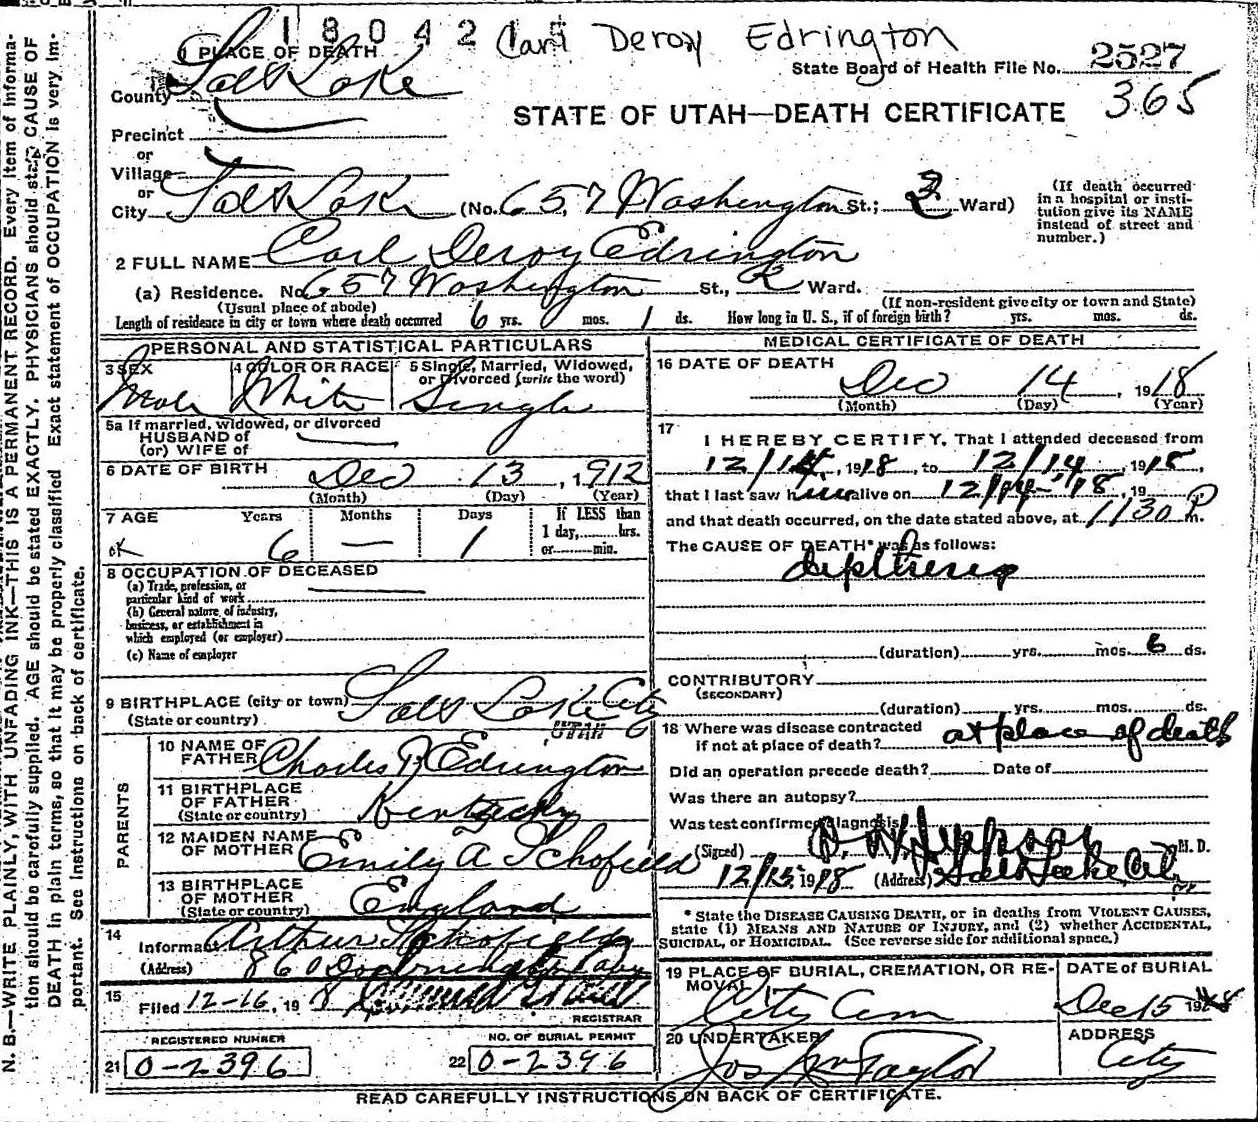 18042 Carl Deroy Edrington
1 PLACE OF DEATH
State Board of Health File No. 2527
County Salt Lake
365
STATE OF UTAH—DEATH CERTIFICATE
Precinct
or
Village
or
City Salt Lake (No. 657 Washington St.; 2 Ward)
(If death occurred in a hospital or insti-
tution give its NAME instead of street and number.)
2 FULL NAME Carl Deroy Edrington
(a) Residence. No. 657 Washington St., 2 Ward.
(Usual place of abode) (If non-resident give city or town and State)
Length of residence in city or town where death occurred 6 yrs. 0 mos. 1 ds. How long in U. S., if of foreign birth? yrs. mos. ds.
PERSONAL AND STATISTICAL PARTICULARS
3 SEX Male
4 COLOR OR RACE White
5 Single, Married, Widowed, or Divorced (write the word) Single
5a If married, widowed, or divorced
HUSBAND of
(or) WIFE of
6 DATE OF BIRTH Dec 13, 1912
(Month) (Day) (Year)
7 AGE Years Months Days If LESS than
1 day, hrs.
or min.
OK 6 — 1
8 OCCUPATION OF DECEASED
(a) Trade, profession, or
particular kind of work
(b) General nature, of industry,
business, or establishment in
which employed (or employer)
(c) Name of employer
9 BIRTHPLACE (city or town) Salt Lake City
(State or country) UTAH
PARENTS
10 NAME OF FATHER Charles R Edrington
11 BIRTHPLACE OF FATHER Kentucky
(State or country)
12 MAIDEN NAME OF MOTHER Emily A Schofield
13 BIRTHPLACE OF MOTHER England
(State or country)
14 Informant Arthur Schofield
(Address) 860
15 Filed 12-16, 1918
REGISTRAR
REGISTERED NUMBER
21 0-2396
NO. OF BURIAL PERMIT
22 0-2396
MEDICAL CERTIFICATE OF DEATH
16 DATE OF DEATH Dec 14, 1918
(Month) (Day) (Year)
17 I HEREBY CERTIFY, That I attended deceased from
12/14, 1918, to 12/14 1918,
that I last saw him alive on 12/14-'18, 19
and that death occurred, on the date stated above, at 1130 P m.
The CAUSE OF DEATH* was as follows:
diptheria
(duration) yrs. mos. 6 ds.
CONTRIBUTORY
(SECONDARY)
(duration) yrs. mos. ds.
18 Where was disease contracted
if not at place of death? at place of death
Did an operation precede death? Date of
Was there an autopsy?
Was test confirmed diagnosis
(Signed) M. D.
12/15, 1918 (Address) Salt Lake City
* State the DISEASE CAUSING DEATH, or in deaths from VIOLENT CAUSES,
state (1) MEANS AND NATURE OF INJURY, and (2) whether ACCIDENTAL,
SUICIDAL, or HOMICIDAL. (See reverse side for additional space.)
19 PLACE OF BURIAL, CREMATION, OR RE-
MOVAL City Cem
DATE of BURIAL
Dec 15 1918
20 UNDERTAKER Jos Wm Taylor
ADDRESS City
READ CAREFULLY INSTRUCTIONS ON BACK OF CERTIFICATE.
N. B.—WRITE PLAINLY, WITH UNFADING INK—THIS IS A PERMANENT RECORD. Every item of informa-
tion should be carefully supplied. AGE should be stated EXACTLY. PHYSICIANS should state CAUSE OF
DEATH in plain terms, so that it may be properly classified. Exact statement of OCCUPATION is very im-
portant. See instructions on back of certificate.